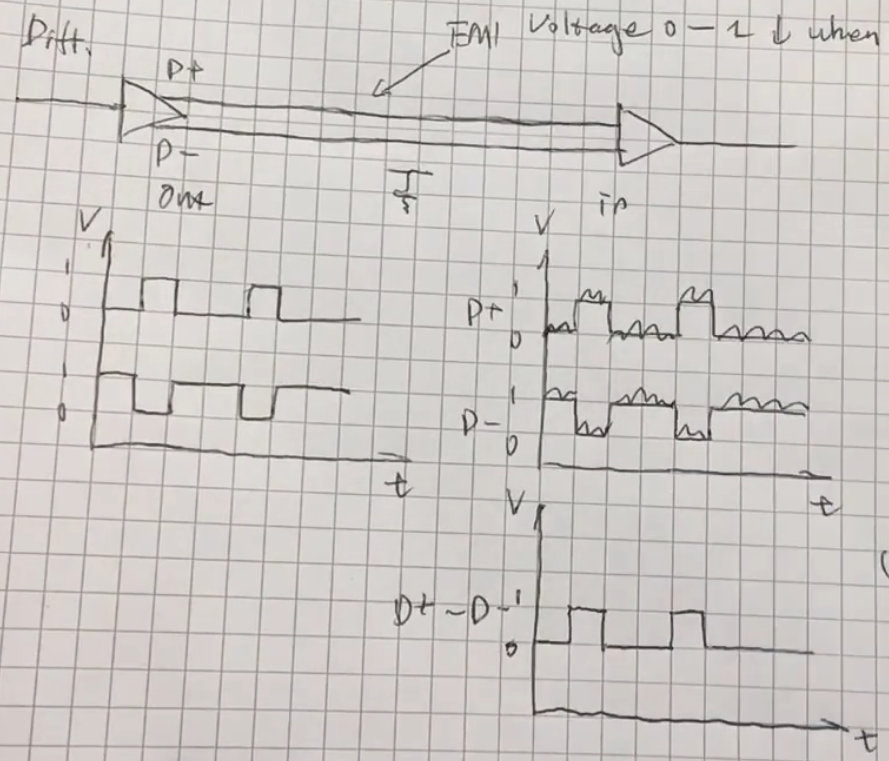 Diff.
EMI Voltage 0-1 ↓ when
D+
D-
Out
in
V
1
0
1
0
t
V
D+ 1
0
D- 1
0
t
V
D+ - D- 1
0
t